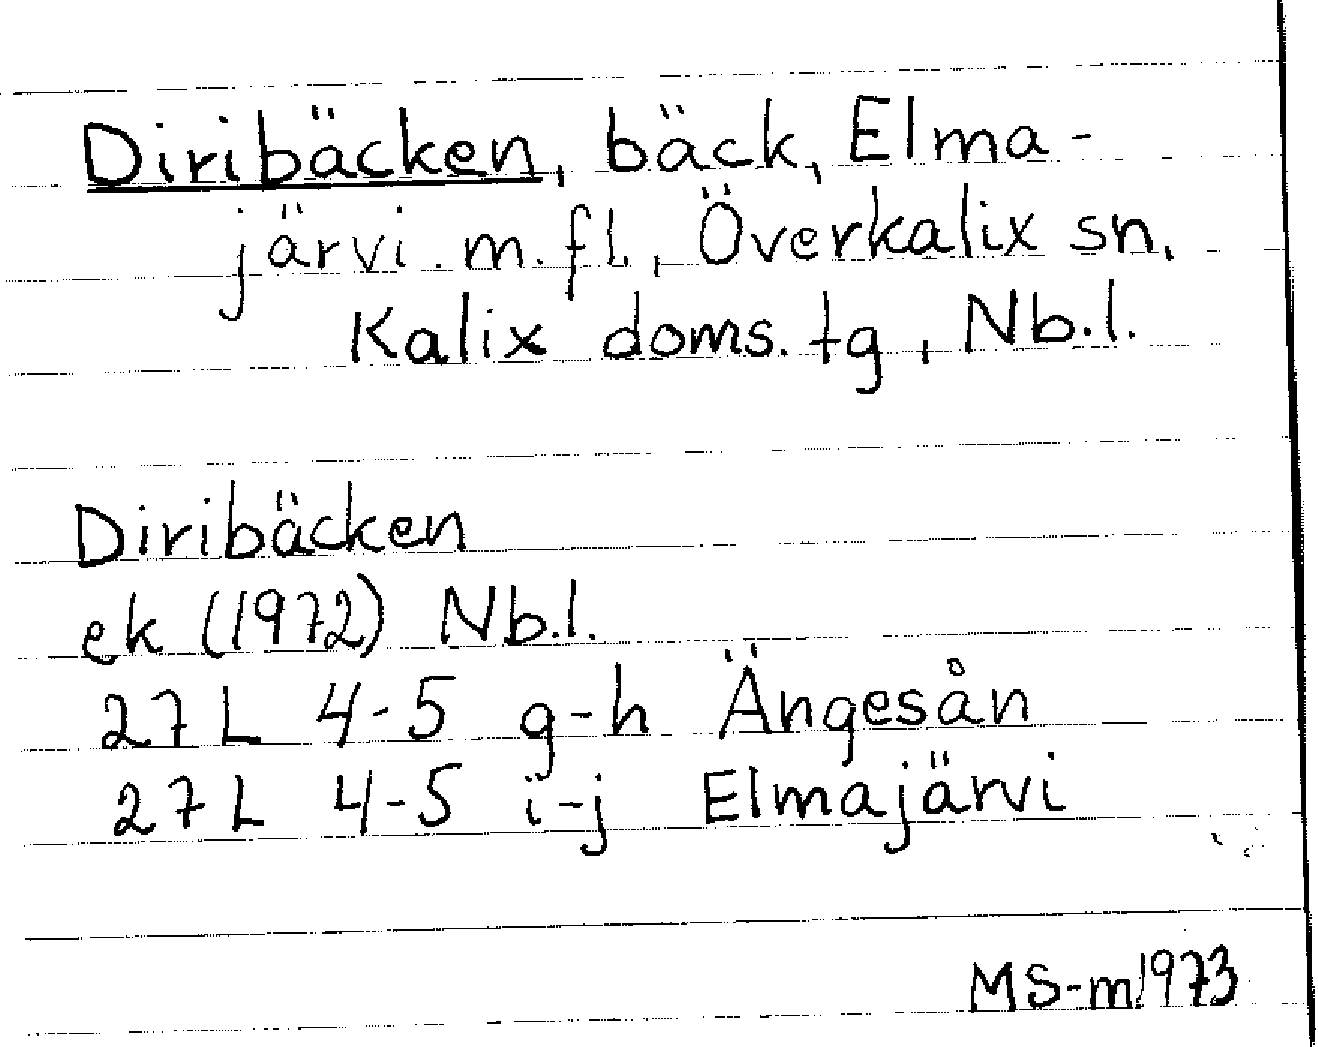 Diribäcken, bäck, Elma-
järvi m.fl., Överkalix sn,
Kalix doms. tg, Nb.l.
Diribäcken
ek (1972) Nb.l.
27 L 4-5 g-h Ängesån
27 L 4-5 i-j Elmajärvi
MS-m 1973